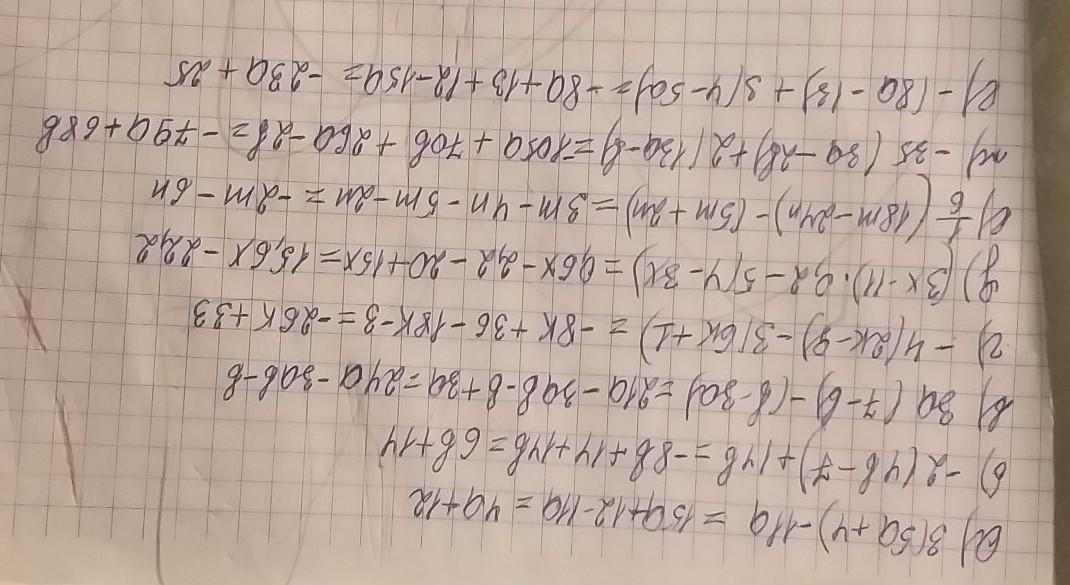 а) 3(5a+4)-11a = 15a+12-11a = 4a+12
б) -2(4b-7)+14b = -8b+14+14b = 6b+14
в) 3a(7-b)-(b-3a) = 21a-3ab-b+3a = 24a-3ab-b
г) -4(2k-9)-3(6k+1) = -8k+36-18k-3 = -26k+33
д) (3x-11)·0,2-5(4-3x) = 0,6x-2,2-20+15x = 15,6x-22,2
е) 1/6 (18m-24n)-(5m+2n) = 3m-4n-5m-2n = -2m-6n
ж) -35(3a-2b)+2(13a-b) = -105a+70b+26a-2b = -79a+68b
е) -(8a-13)+3(4-5a) = -8a+13+12-15a = -23a+25